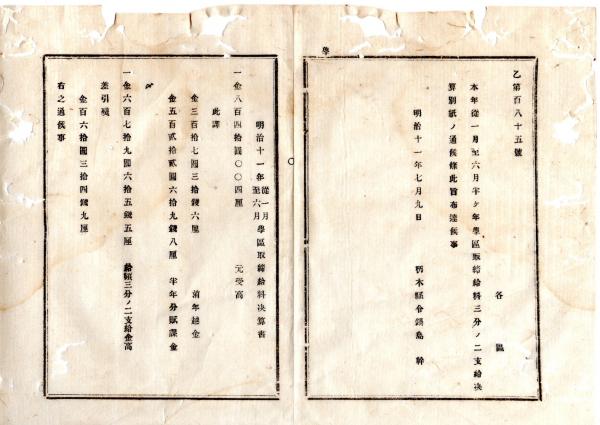 乙第百八十五號
各區
本年從一月至六月半ケ年學區取締給料三分ノ二支給决
算別紙ノ通候條此旨布達候事
明治十一年七月九日
栃木縣令鍋島幹
學
明治十一年從一月至六月學區取締給料决算書
一金八百四拾圓〇〇四厘 元受高
此譯
金三百拾七圓三拾錢六厘 前年越金
金五百貳拾貳圓六拾九錢八厘 半年分賦課金
〆
一金六百七拾九圓六拾五錢五厘 給額三分ノ二支給金高
差引殘
金百六拾圓三拾四錢九厘
右之通候事